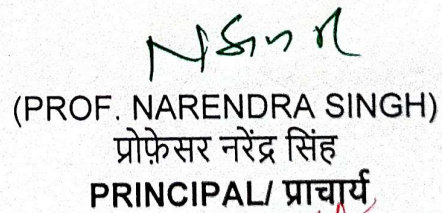 (PROF. NARENDRA SINGH)
प्रोफ़ेसर नरेंद्र सिंह
PRINCIPAL/ प्राचार्य